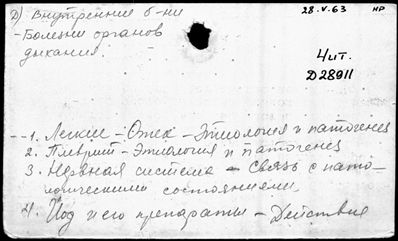 Д) Внутренние б-ни
28.V.63 НР
-Болезни органов
дыхания.
Чит.
D28911
1. Легкие - Отек - Этиология и патогенез
2. Плеврит - Этиология и патогенез
3. Нервная система - Связь с пато-
логическими состояниями
4. Иод и его препараты - Действие